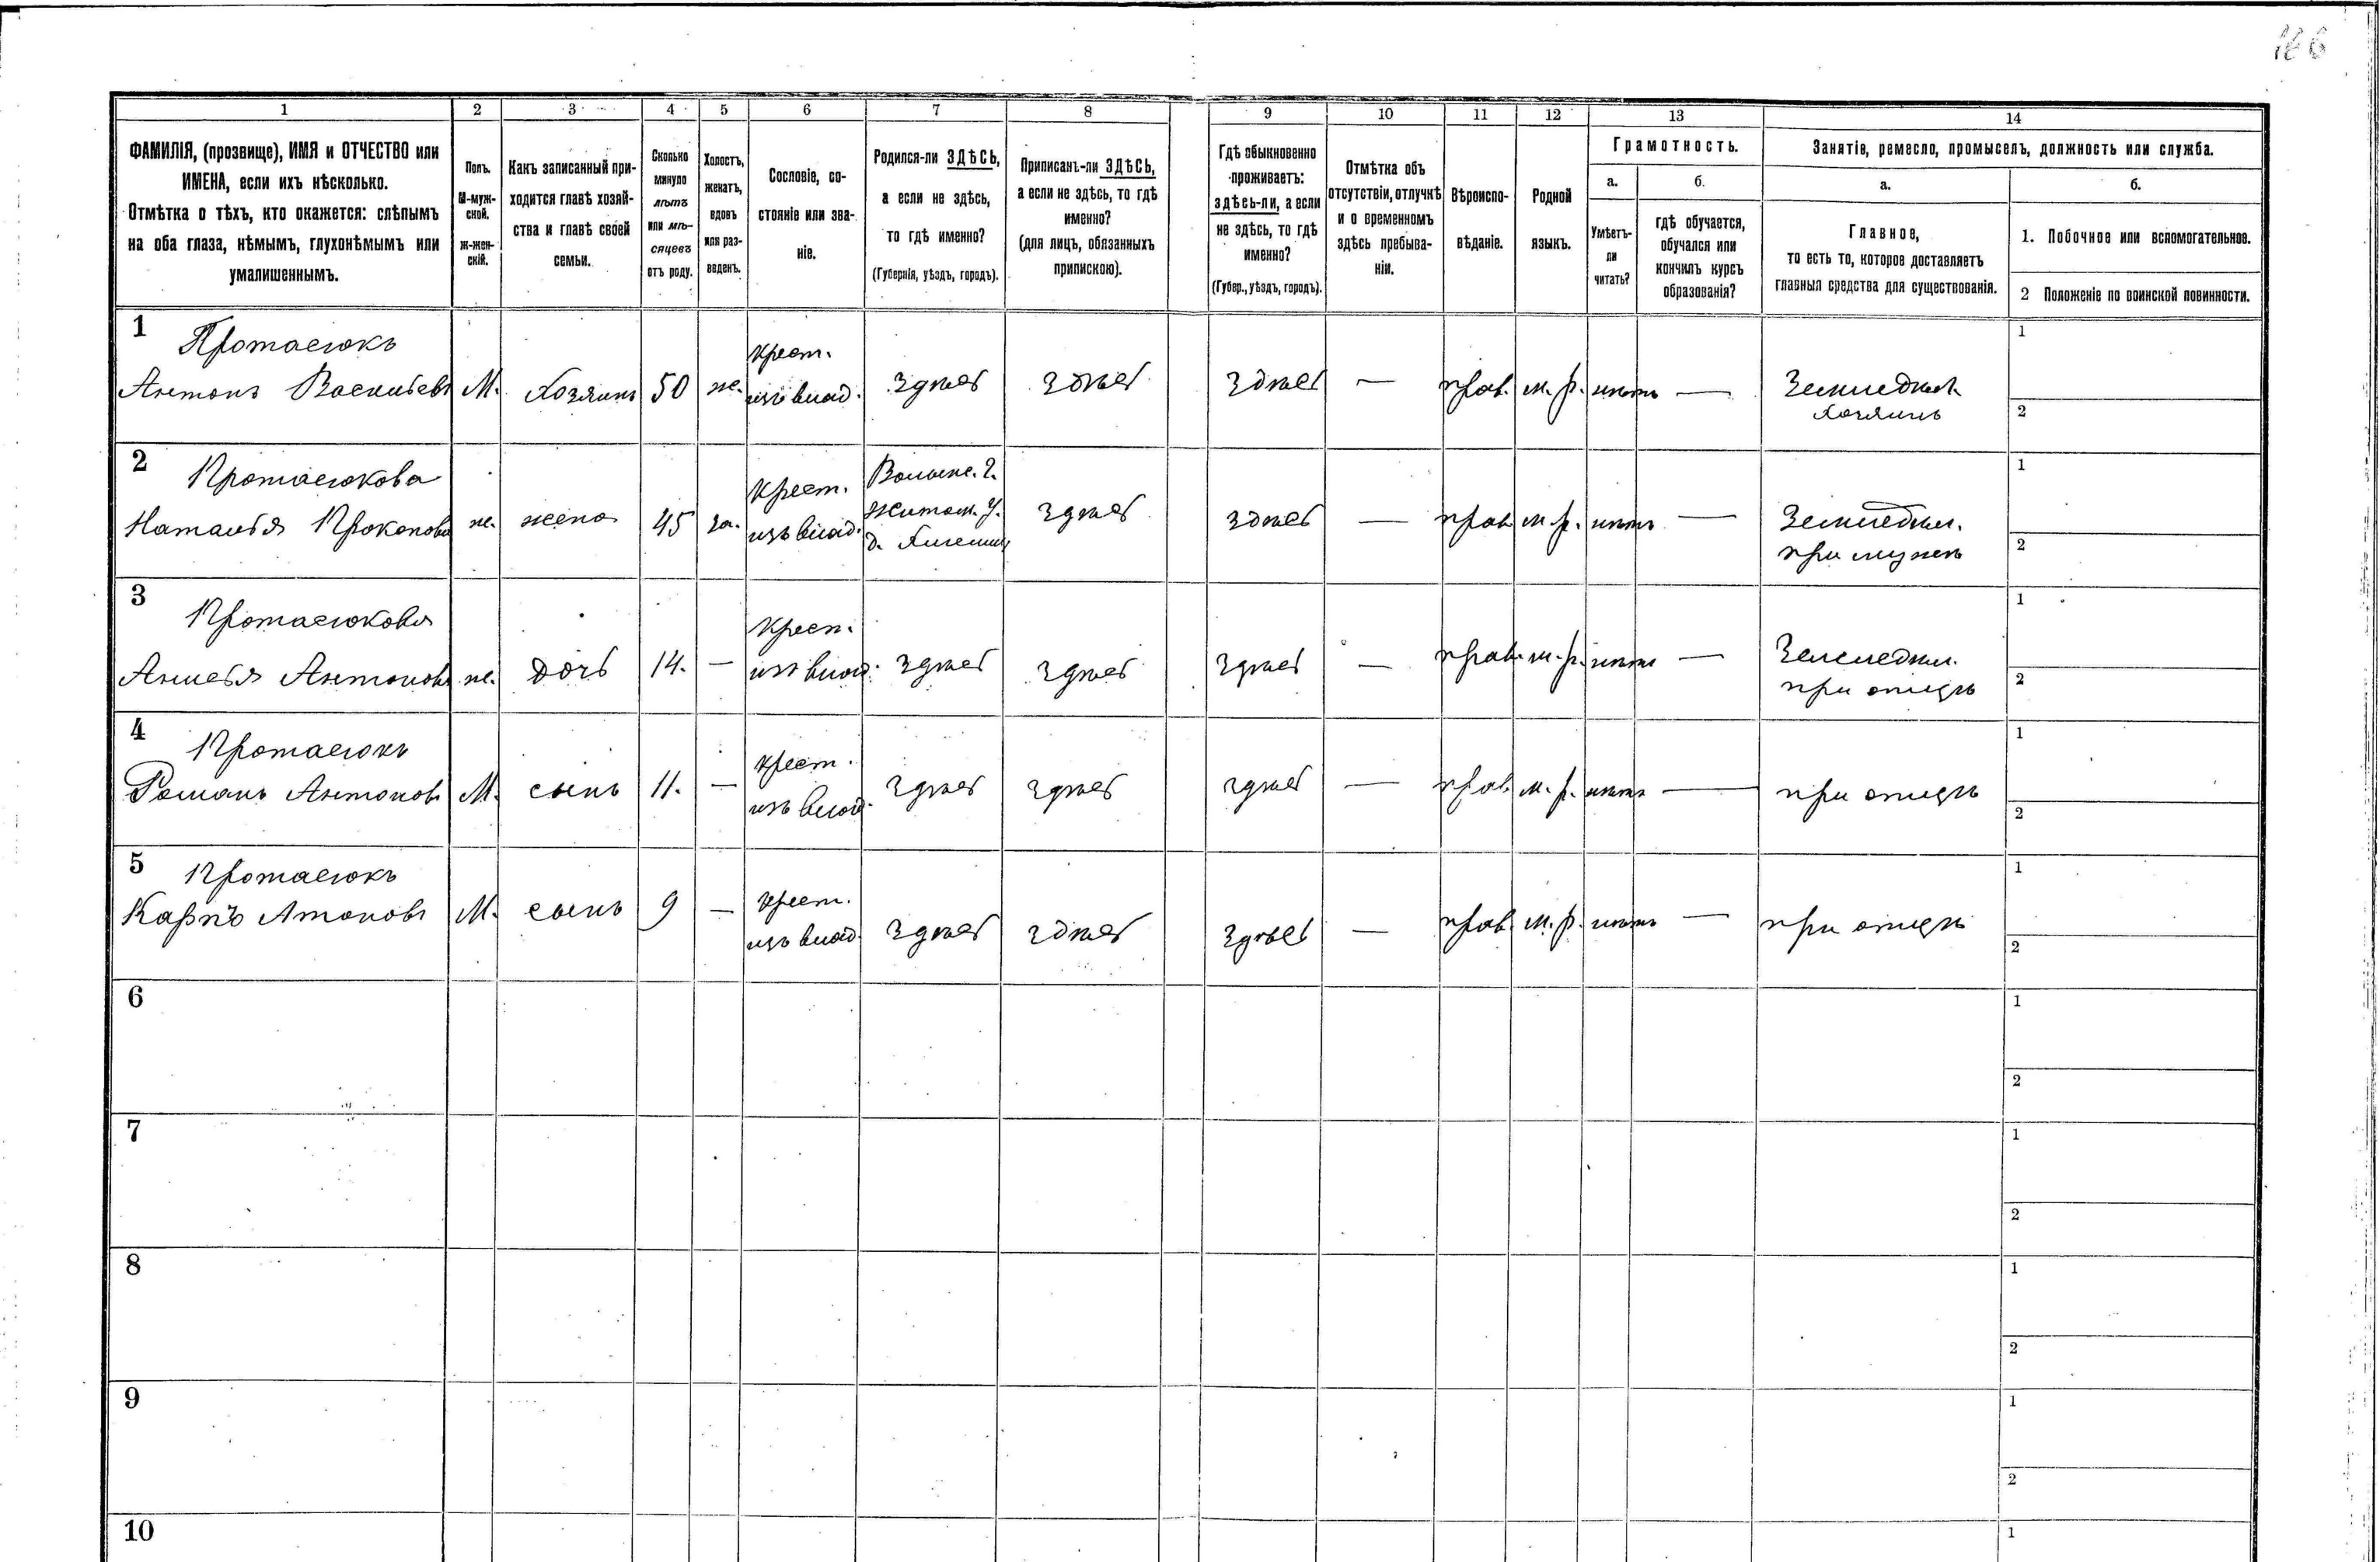 166
1 2 3 4 5 6 7 8 9 10 11 12 13 14
ФАМИЛІЯ, (прозвище), ИМЯ и ОТЧЕСТВО или
ИМЕНА, если ихъ нѣсколько.
Отмѣтка о тѣхъ, кто окажется: слѣпымъ
на оба глаза, нѣмымъ, глухонѣмымъ или
умалишеннымъ.
Полъ.
М-муж-
ской.
Ж-жен-
скій.
Какъ записанный при-
ходится главѣ хозяй-
ства и главѣ своей
семьи.
Сколько
минуло
лѣтъ
или мѣ-
сяцевъ
отъ роду.
Холостъ,
женатъ,
вдовъ
или раз-
веденъ.
Сословіе, со-
стояніе или зва-
ніе.
Родился-ли ЗДѢСЬ,
а если не здѣсь,
то гдѣ именно?
(Губернія, уѣздъ, городъ).
Приписанъ-ли ЗДѢСЬ,
а если не здѣсь, то гдѣ
именно?
(для лицъ, обязанныхъ
припискою).
Гдѣ обыкновенно
проживаетъ:
здѣсь-ли, а если
не здѣсь, то гдѣ
именно?
(Губер., уѣздъ, городъ).
Отмѣтка объ
отсутствіи, отлучкѣ
и о временномъ
здѣсь пребыва-
ніи.
Вѣроиспо-
вѣданіе.
Родной
языкъ.
Грамотность.
а.
Умѣетъ-
ли
читать?
б.
гдѣ обучается,
обучался или
кончилъ курсъ
образованія?
Занятіе, ремесло, промыселъ, должность или служба.
а.
Главное,
то есть то, которое доставляетъ
главныя средства для существованія.
б.
1. Побочное или вспомогательное.
2 Положеніе по воинской повинности.
1 Протасюкъ
Антонъ Васильевъ М. Хозяинъ 50 же.
крест.
изъ влад.
здѣсь здѣсь здѣсь — прав. м.р. нѣтъ —
Земледѣл.
хозяинъ
1
2
2 Протасюкова
Наталья Прокопова же. жена 45 за.
крест.
изъ влад.
Волынс. г.
Житом. у.
д.
здѣсь здѣсь — прав. м.р. нѣтъ —
Земледѣл.
при мужѣ
1
2
3 Протасюкова
Антонова же. дочь 14. —
крест.
изъ влад.
здѣсь здѣсь здѣсь — прав. м.р. нѣтъ —
Земледѣл.
при отцѣ
1
2
4 Протасюкъ
Романъ Антоновъ М. сынъ 11. —
крест.
изъ влад.
здѣсь здѣсь здѣсь — прав. м.р. нѣтъ —
при отцѣ
1
2
5 Протасюкъ
Карпъ Атоновъ М. сынъ 9 —
крест.
изъ влад.
здѣсь здѣсь здѣсь — прав. м.р. нѣтъ —
при отцѣ
1
2
6
1
2
7
1
2
8
1
2
9
1
2
10
1